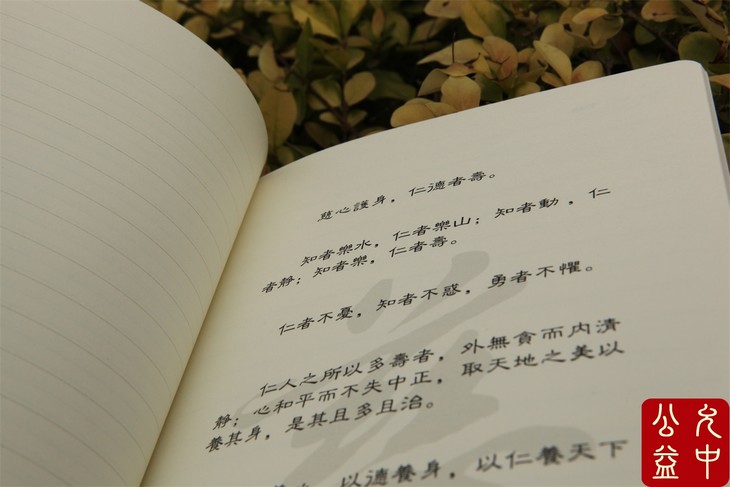 慈心護身，仁德者壽。
知者樂水，仁者樂山；知者動，仁
者靜；知者樂，仁者壽。
仁者不憂，知者不惑，勇者不懼。
仁人之所以多壽者，外無貪而內清
靜；心和平而不失中正，取天地之美以
養其身，是其且多且治。
，以德養身，以仁養天下
允中
公益